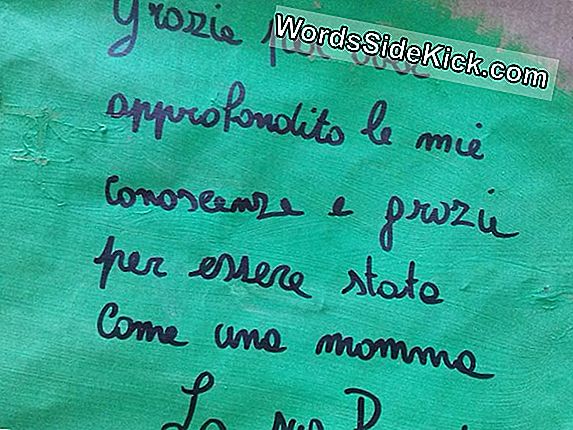 WordsSideKick.com
Grazie per
approfondito le mie
conoscenze e grazie
per essere stata
come una mamma
La tua